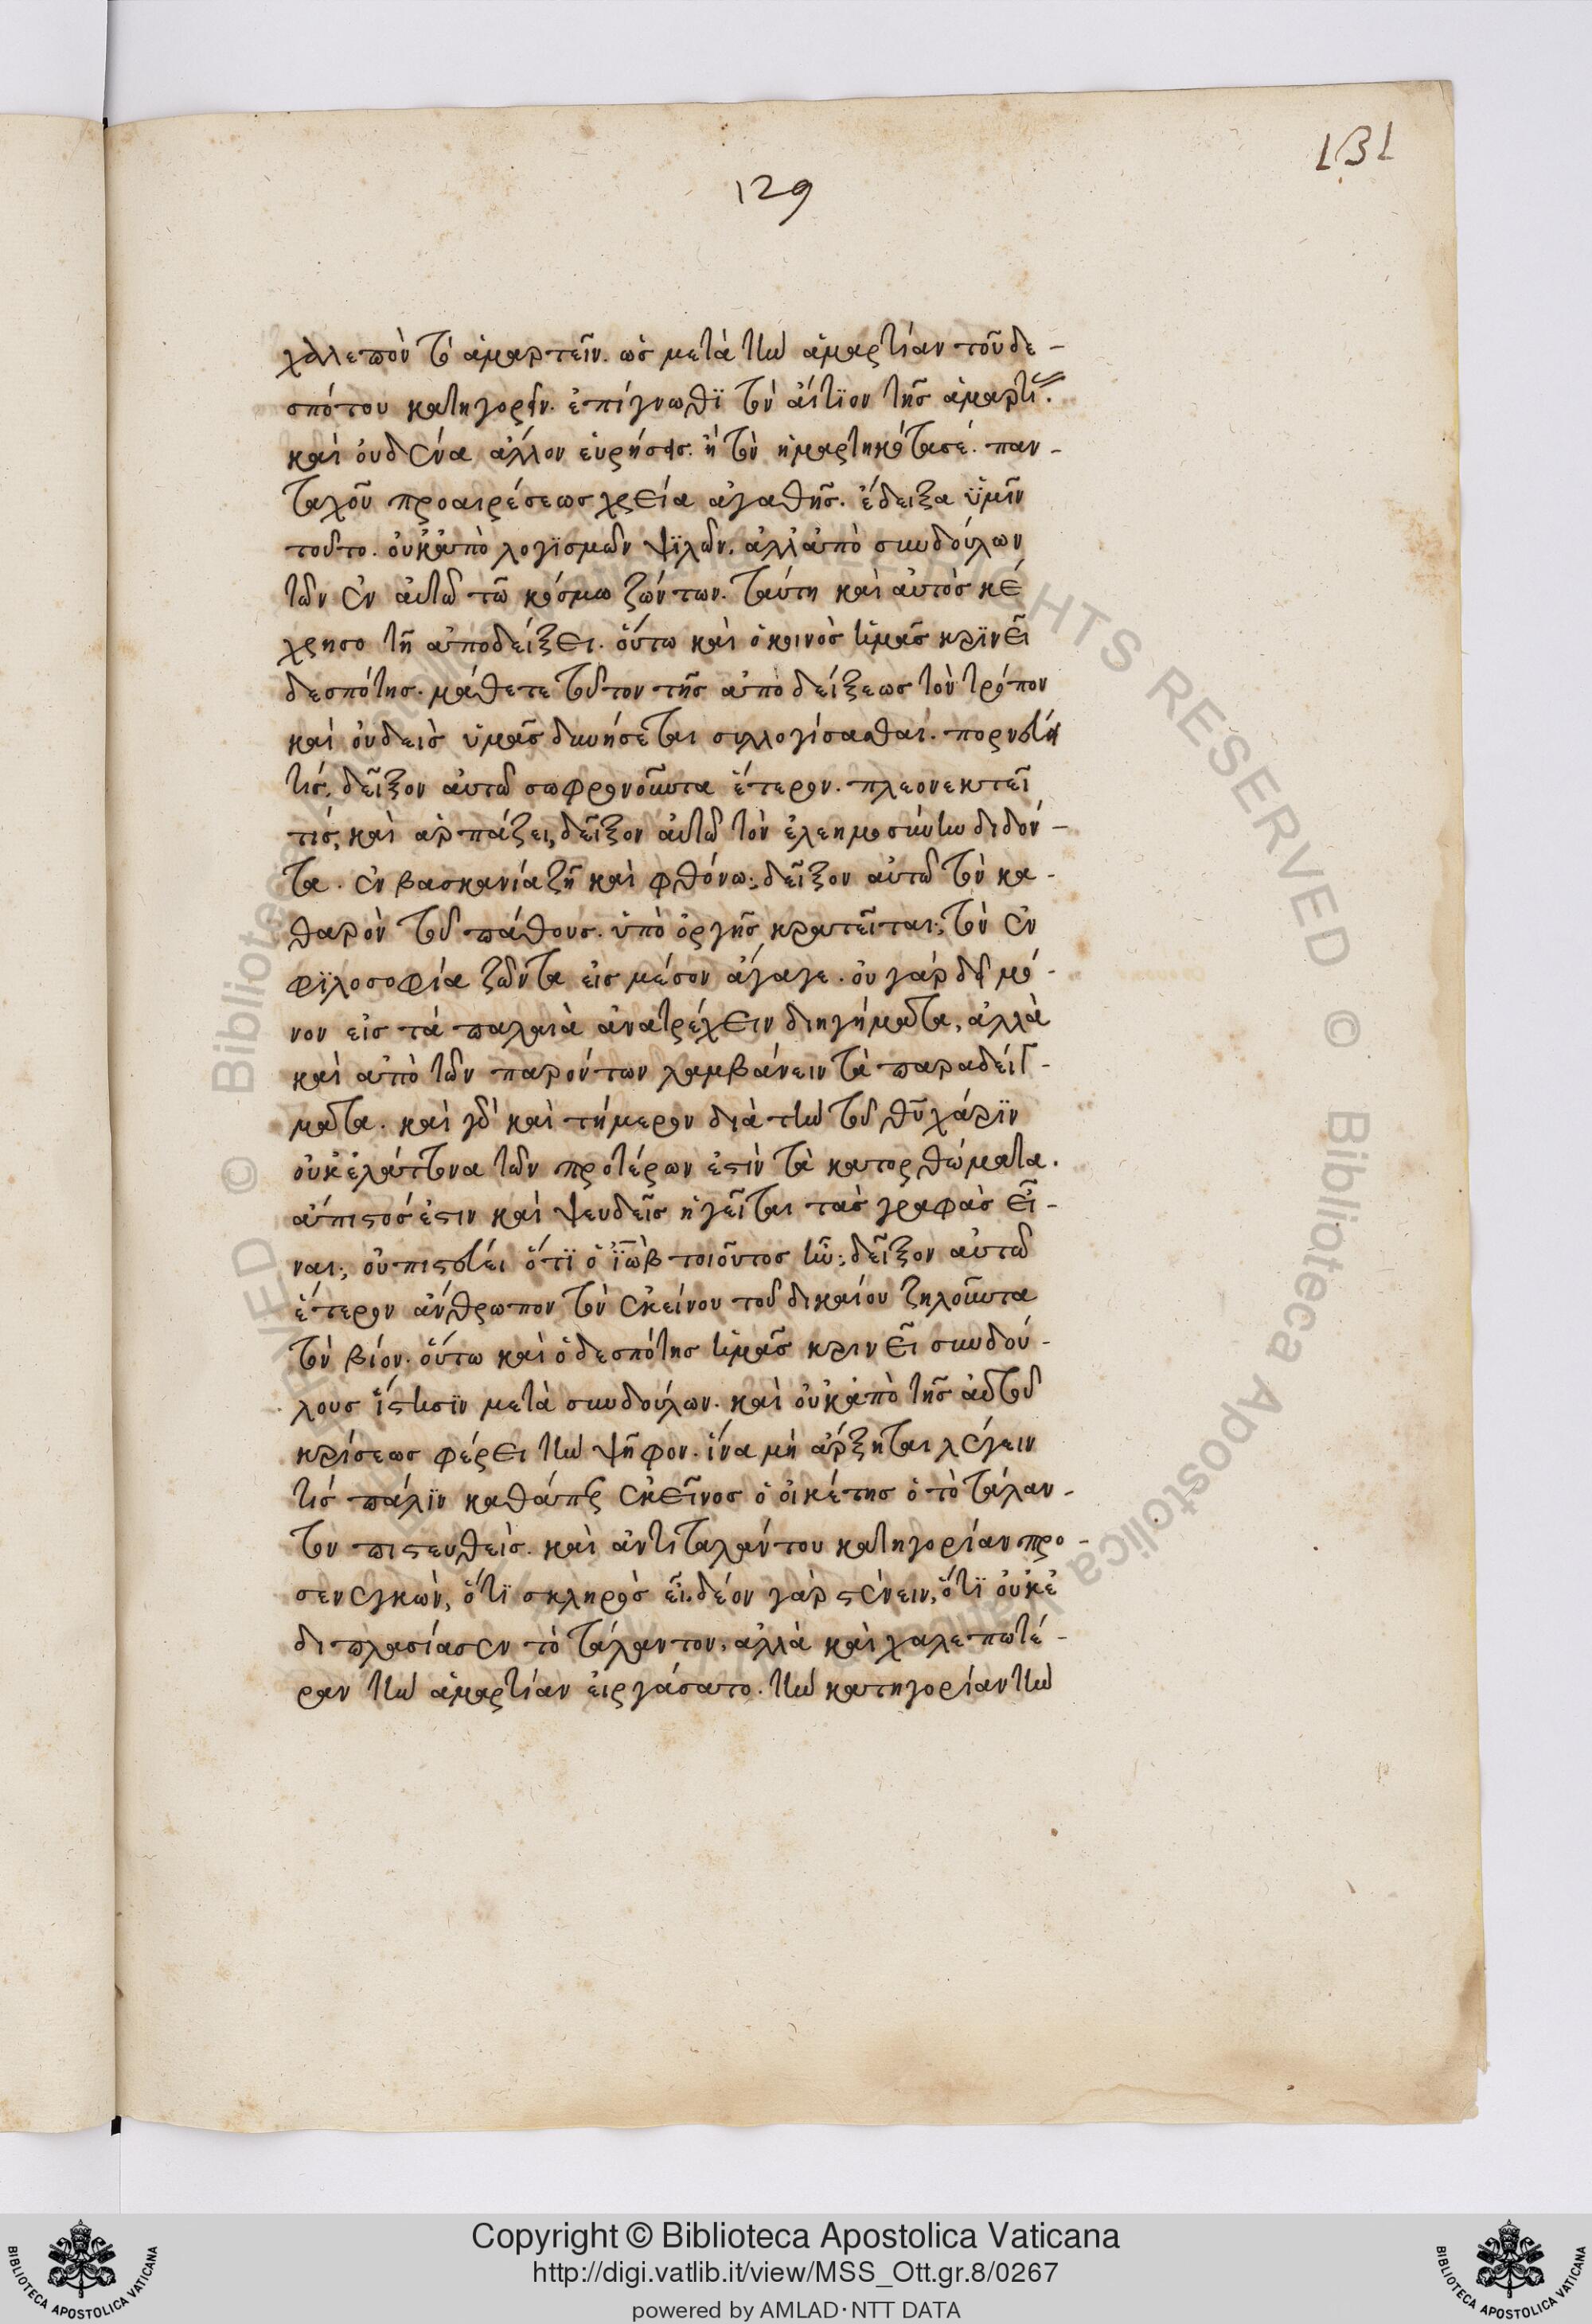 131
129
χαλεπὸν τὸ ἁμαρτεῖν. ὡς μετὰ τὴν ἁμαρτίαν τοῦ δε-
σπότου κατηγορεῖν. ἐπίγνωθϊ τὸν αἴτϊον τῆς ἁμαρτί.
καὶ οὐδένα ἄλλον εὑρήσεις. ἢ τὸν ἡμαρτηκότασέ. παν-
ταχοῦ προαιρέσεως χρεία ἀγαθῆς. ἔδειξα ὑμῖν
τοῦτο. οὐκἀπὸ λογϊσμῶν ψϊλῶν. ἀλλἀπὸ συνδούλων
τῶν ἐν αὐτῶ τῶ κόσμω ζώντων. ταύτη καὶ αὐτὸς κέ
χρησο τῆ ἀποδείξει. οὕτω καὶ ὁ κοινὸς ἡμᾶς κρϊνεῖ
δεσπότης. μάθετε τοῦτον τῆς ἀποδείξεως τὸν τρόπον
καὶ οὐδεὶς ὑμᾶς δυνήσεται συλλογίσασθαι. πορνεύει
τίς, δεῖξον αὐτῶ σωφρονοῦντα ἕτερον. πλεονεκτεῖ
τίς, καὶ ἁρπάζει, δεῖξον αὐτῶ τὸν ἐλεημοσύνην διδόν-
τα. ἐν βασκανία ζῆ καὶ φθόνω; δεῖξον αὐτῶ τὸν κα-
θαρὸν τοῦ πάθους. ὑπὸ ὀργῆς κρατεῖται; τὸν ἐν
φϊλοσοφία ζῶντα εἰς μέσον ἄγαγε. οὐ γὰρ δεῖ μό-
νον εἰς τὰ παλαιὰ ἀνατρέχειν διηγήματα, ἀλλὰ
καὶ ἀπὸ τῶν παρόντων λαμβάνειν τὰ παραδείγ-
ματα. καὶ γὰρ καὶ τήμερον διὰ τὴν τοῦ θῦ χάρϊν
οὐκἐλάττονα τῶν προτέρων ἐστὶν τὰ κατορθώματα.
ἄπιστός ἐστιν καὶ ψευδεῖς ἡγεῖται τὰς γραφὰς εἶ-
ναι; οὐ πιστεύει ὅτϊ ὁ ἰὼβ τοιοῦτος ἦν; δεῖξον αὐτῶ
ἕτερον ἄνθρωπον τὸν ἐκείνου τοῦ δικαίου ζηλοῦντα
τὸν βίον. οὕτω καὶ ὁ δεσπότης ἡμᾶς κρινεῖ συνδού-
λους ἵστησϊν μετὰ συνδούλων. καὶ οὐκἀπὸ τῆς αὐτοῦ
κρίσεως φέρει τὴν ψῆφον. ἵνα μὴ ἄρξηται λέγειν
τίς πάλϊν καθάπερ ἐκεῖνος ὁ οἰκέτης ὁ τὸ τάλαν-
τον πιστευθεὶς. καὶ ἀντὶ ταλάντου κατηγορίαν προ-
σενεγκὼν, ὅτϊ σκληρὸς εἶ. δέον γὰρ στένειν, ὅτϊ οὐκἐ
διπλασίασεν τὸ τάλαντον, ἀλλὰ καὶ χαλεπωτέ-
ραν τὴν ἁμαρτίαν εἰργάσατο. τὴν κατηγορίαν τὴν
Copyright © Biblioteca Apostolica Vaticana
http://digi.vatlib.it/view/MSS_Ott.gr.8/0267
powered by AMLAD·NTT DATA